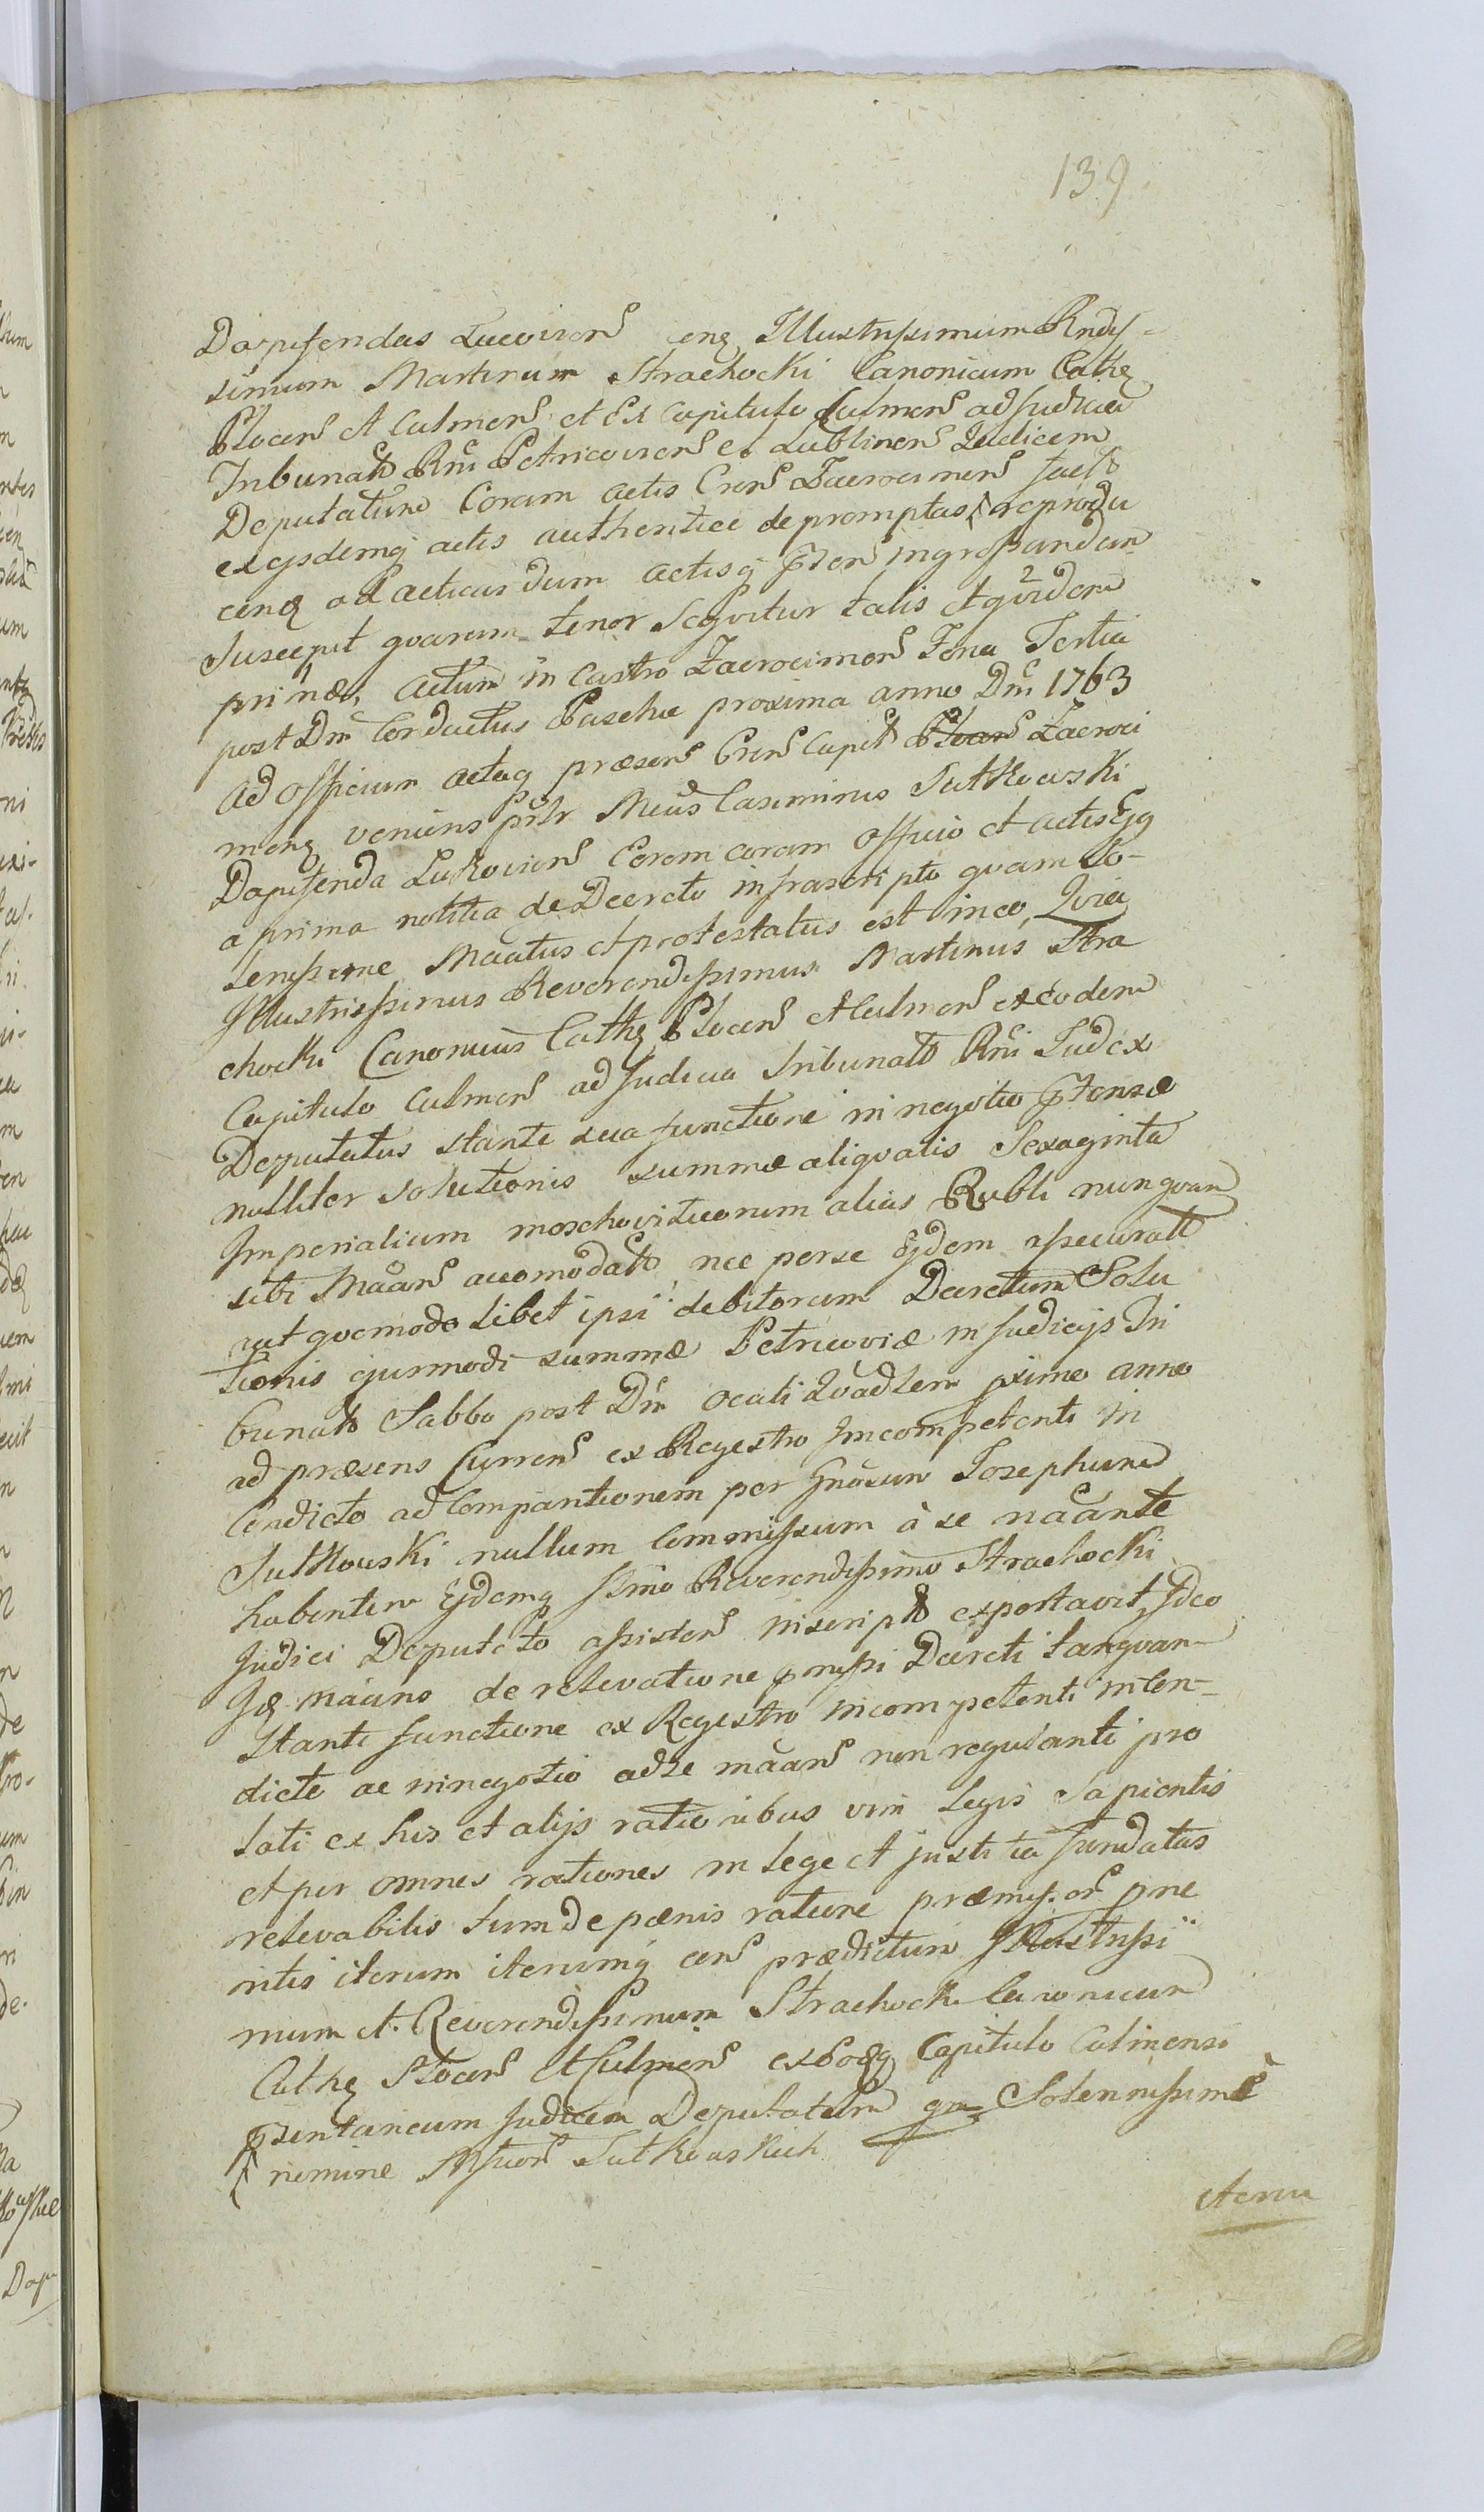 139
Dapiferidas Lucovienẽ cnꝫ Illustrissimum Rndis-
simum Martinum Strachocki Canonicum Cathꝫ
Plocenẽ et Culmenẽ et Ex Capitulo Culmenẽ ad Judicia
Tribunalẽ Rñi Petricovienẽ et Lublinenẽ Judicem
Deputatum Coram actis Crenẽ Zacrocimenẽ fact
exejsdemq actis authentice depromptas reprodu
cenꝫ ad acticandum actisq ptẽn ingrossandum
Suscepit quarum tenor Seqvitur talis et qvidem
primæ, Actum in Castro Zacrocimenẽ Feria Tertia
post Dm̃ Conductus Paschæ proxima anno Dni 1763
ad officium actaq præsenẽ Crenẽ Capit Zacroci
menꝫ veniens psltr Mcus Casimirus Sutkowski
Dapiferida Lukovienẽ Eorem coram officio et actis Ejg
a prima notitia de Decreto infrascripto quam So-
lenissime Maatus et protestatus est in eo, Qvia
Illustrissimus Reverendissimus Martinus Stra
chocki Canonicus Cathꝫ Plocenẽ et Culmenẽ ex eodem
Capitulo Culmenẽ ad Judicia Tribunalẽ Rñi Judex
Deputatus stante sua functione in negotio ptensæ
nulliter solutionis summæ aliqvalis Sexaginta
Imperialium moschoviticorum alias Rubli nunquam
sibi Maanẽ accomodatẽ, nec per se Ejdem assecuratẽ
aut qvomodolibet ipsi debitorum Decretum Solu
tionis ejusmodi summæ Petricoviæ in Judicijs Tri
bunalẽ Sabbo post Dm̃ Oculi Qvadlem pximo anno
ad præsens Currenẽ ex Regestro Incompetenti in
Condicto ad Comparitionem per Gnosum Josephum
Sutkowski nullum Commissum à se naante
habentem Ejdemq Ilmo Reverendissimo Strachocki
Judici Deputato assistenẽ inscriptẽ exportavit, Ideo
Iꝫ màãns de relevatione pmissi Decreti tanquam
Stante functione ex Regestro incompetenti in Con-
dicto ac in negotio ad Se maanẽ non regulanti pro
lati ex his et alijs rationibus vim Legis Sapientis
et per omnes rationes in Lege et justitia fundatas
relevabilis tum de pænis ratione præmissorẽ pme
ritis iterum iterumq cenẽ prædictum Illustrissi
mum et Reverendissimum Strachocki Canonicum
Cathꝫ Plocenẽ et Culmenẽ ex Eodꝫ Capitulo Culmensi
psentaneum Judicem Deputatum qm Solennissimè
nomine Msuorẽ Sutkowskich
iteru